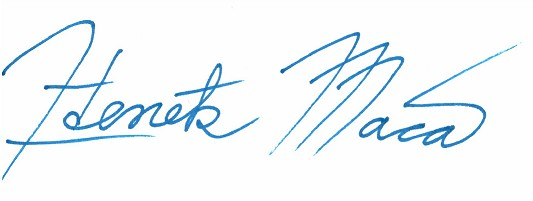 Zdenek Macal